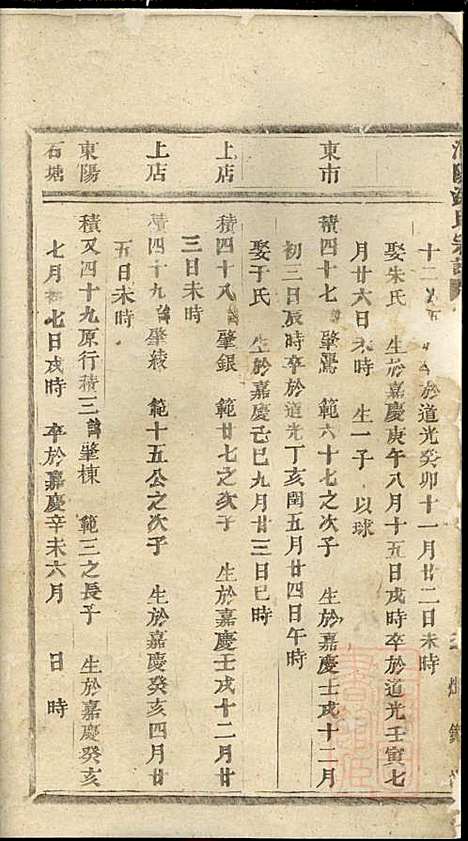 十二 於道光癸卯十一月廿二日未時
娶朱氏 生於嘉慶庚午八月十五日戌時卒於道光壬寅七
月廿六日未時 生一子 以球
東市
積四十七 諱肇鸞 範六十七之次子 生於嘉慶壬戌十二月
初三日辰時卒於道光丁亥閏五月廿四日午時
娶于氏 生於嘉慶己巳九月廿三日巳時
上店
積四十八 諱肇銀 範廿七之次子 生於嘉慶壬戌十二月廿
三日未時
上店
積四十九 諱肇綾 範十五公之次子 生於嘉慶癸亥四月廿
五日未時
東陽
積又四十九原行積三 諱肇棟 範三之長子 生於嘉慶癸亥
石塘
七月初七日戌時 卒於嘉慶辛未六月 日 時